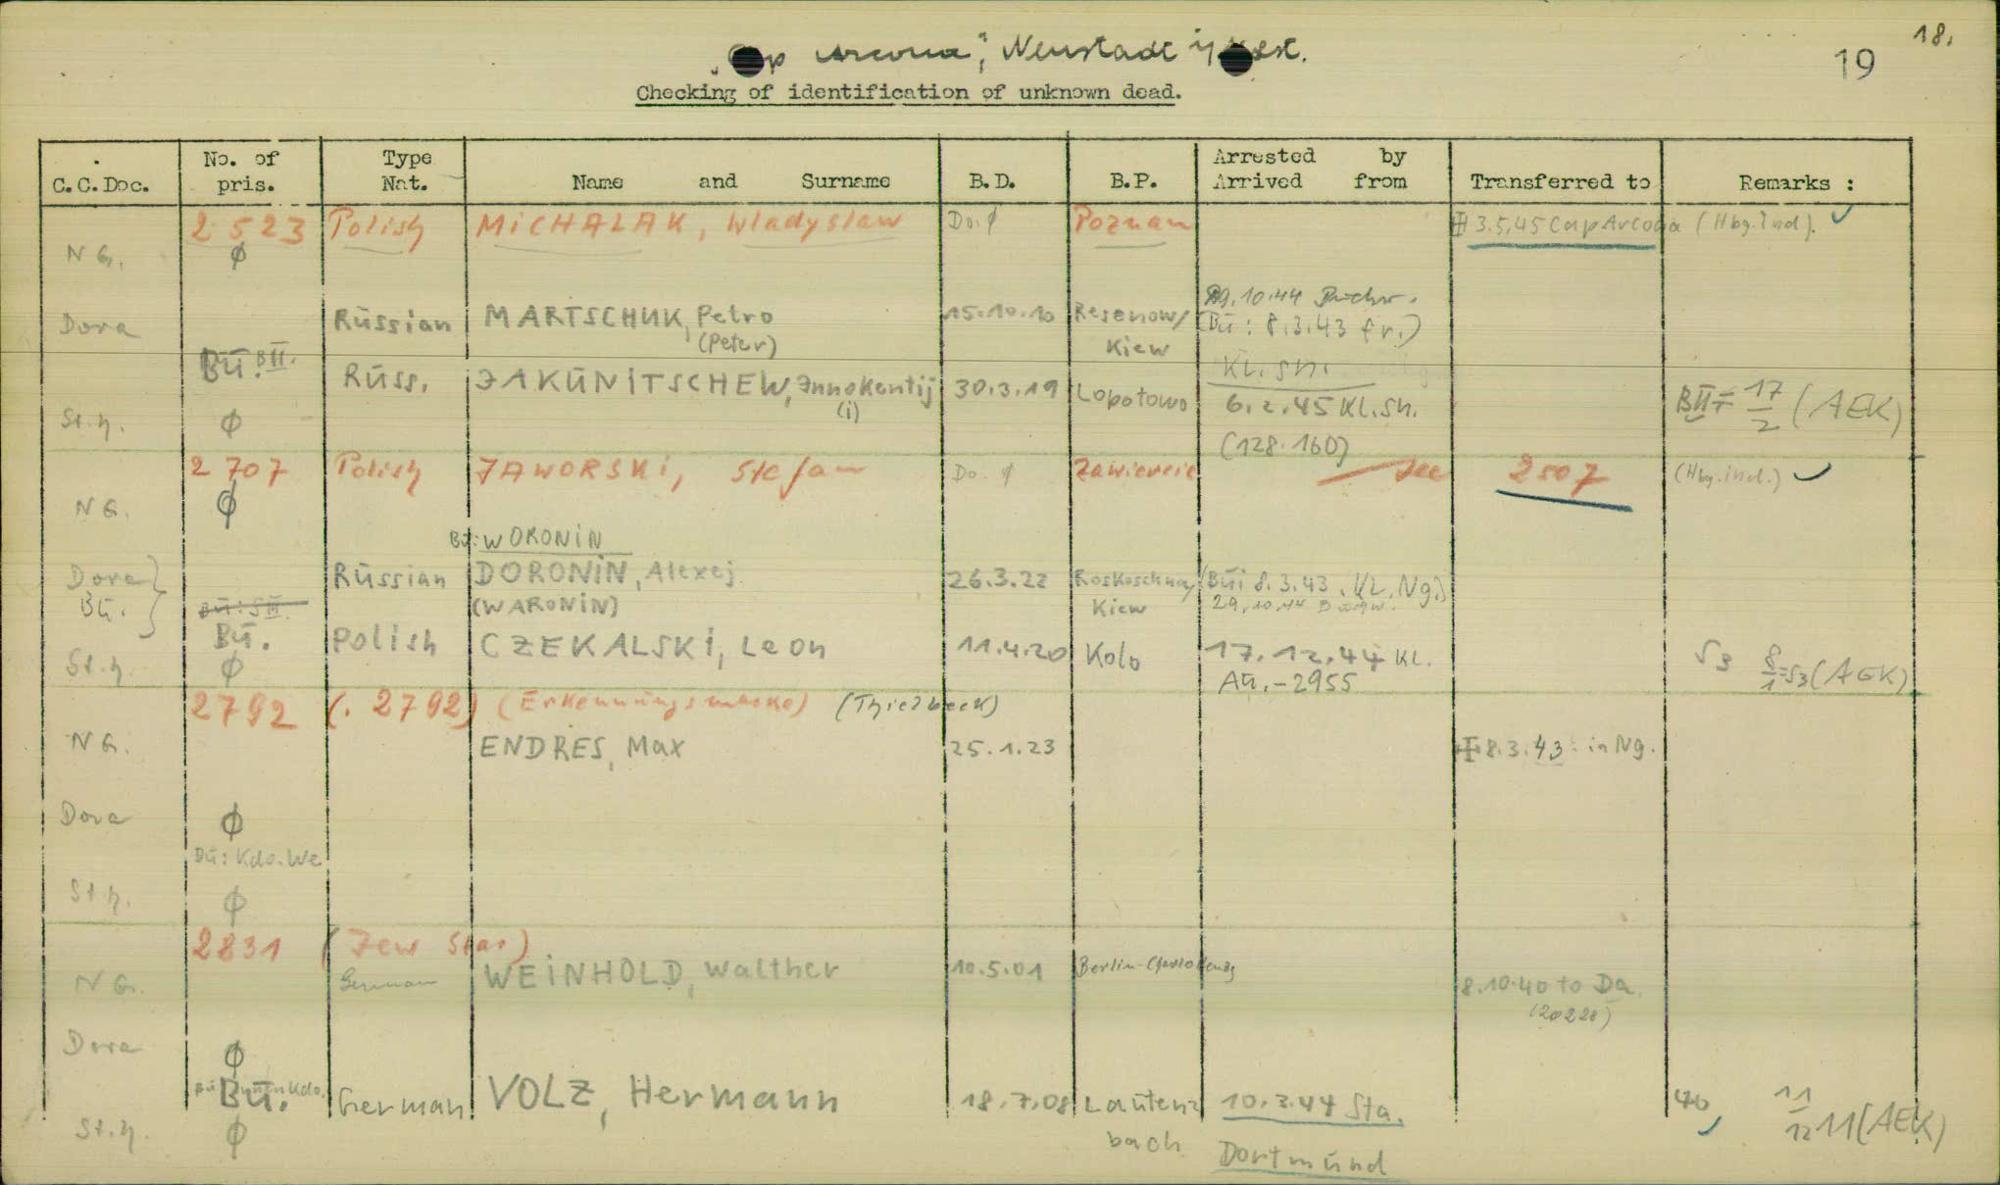 "Cap Arcona", Neustadt i/Holst.
18.
19
Checking of identification of unknown dead.
C.C.Doc. No. of pris. Type Nat. Name and Surname B.D. B.P. Arrested by Arrived from Transferred to Remarks :
2 523 Polish MiCHALAK, Wladyslaw Do. ϕ Poznan 3.5.45 Cap Arcona (Hbg. Ind). ✓
NG. ϕ
29.10.44 Buchw.
Dora Rüssian MARTSCHUK, Petro 15.10.10 Resenow/ (Bü: 8.3.43 fr.)
(Peter) Kiew
Bü. BII. Rüss. JAKÜNiTSCHEW, Innokentij 30.3.19 Lopotowo KL. Sh.
(i) 6.2.45 KL.Sh. BII= 17/2 (AEK)
St.h. ϕ (128.160)
2 707 Polish JAWORSKi, Stefan Do. ϕ Zawiercie see 2507 (Hbg. ind.) ✓
NG. ϕ
Bü: WORONiN
Dora Rüssian DORONiN, Alexej 26.3.22 Roskoschnay/ (Bü: 8.3.43. KL. Ng.)
Bü. Bü: SIII. (WARONiN) Kiew 29.10.44
Bü. Polish CZEKALSKi, Leon 11.4.20 Kolo 17.12.44 KL. S3 8/1=S3 (AEK)
St.h. ϕ Aü.-2955
2792 (. 2792) (Erkennungsmarke)
NG. ENDRES, Max 25.1.23 8.3.43 in Ng.
Dora ϕ
Bü: Kdo. We
St.h. ϕ
2831 (Jew Star)
NG. German WEiNHOLD, Walther 10.5.01 Berlin-Charlottenbg 8.10.40 to Da.
(20220)
Dora ϕ
Bü. German VOLZ, Hermann 18.7.08 Lautenbach 10.3.44 Sta. 11/12 11 (AEK)
St.h. ϕ Dortmünd